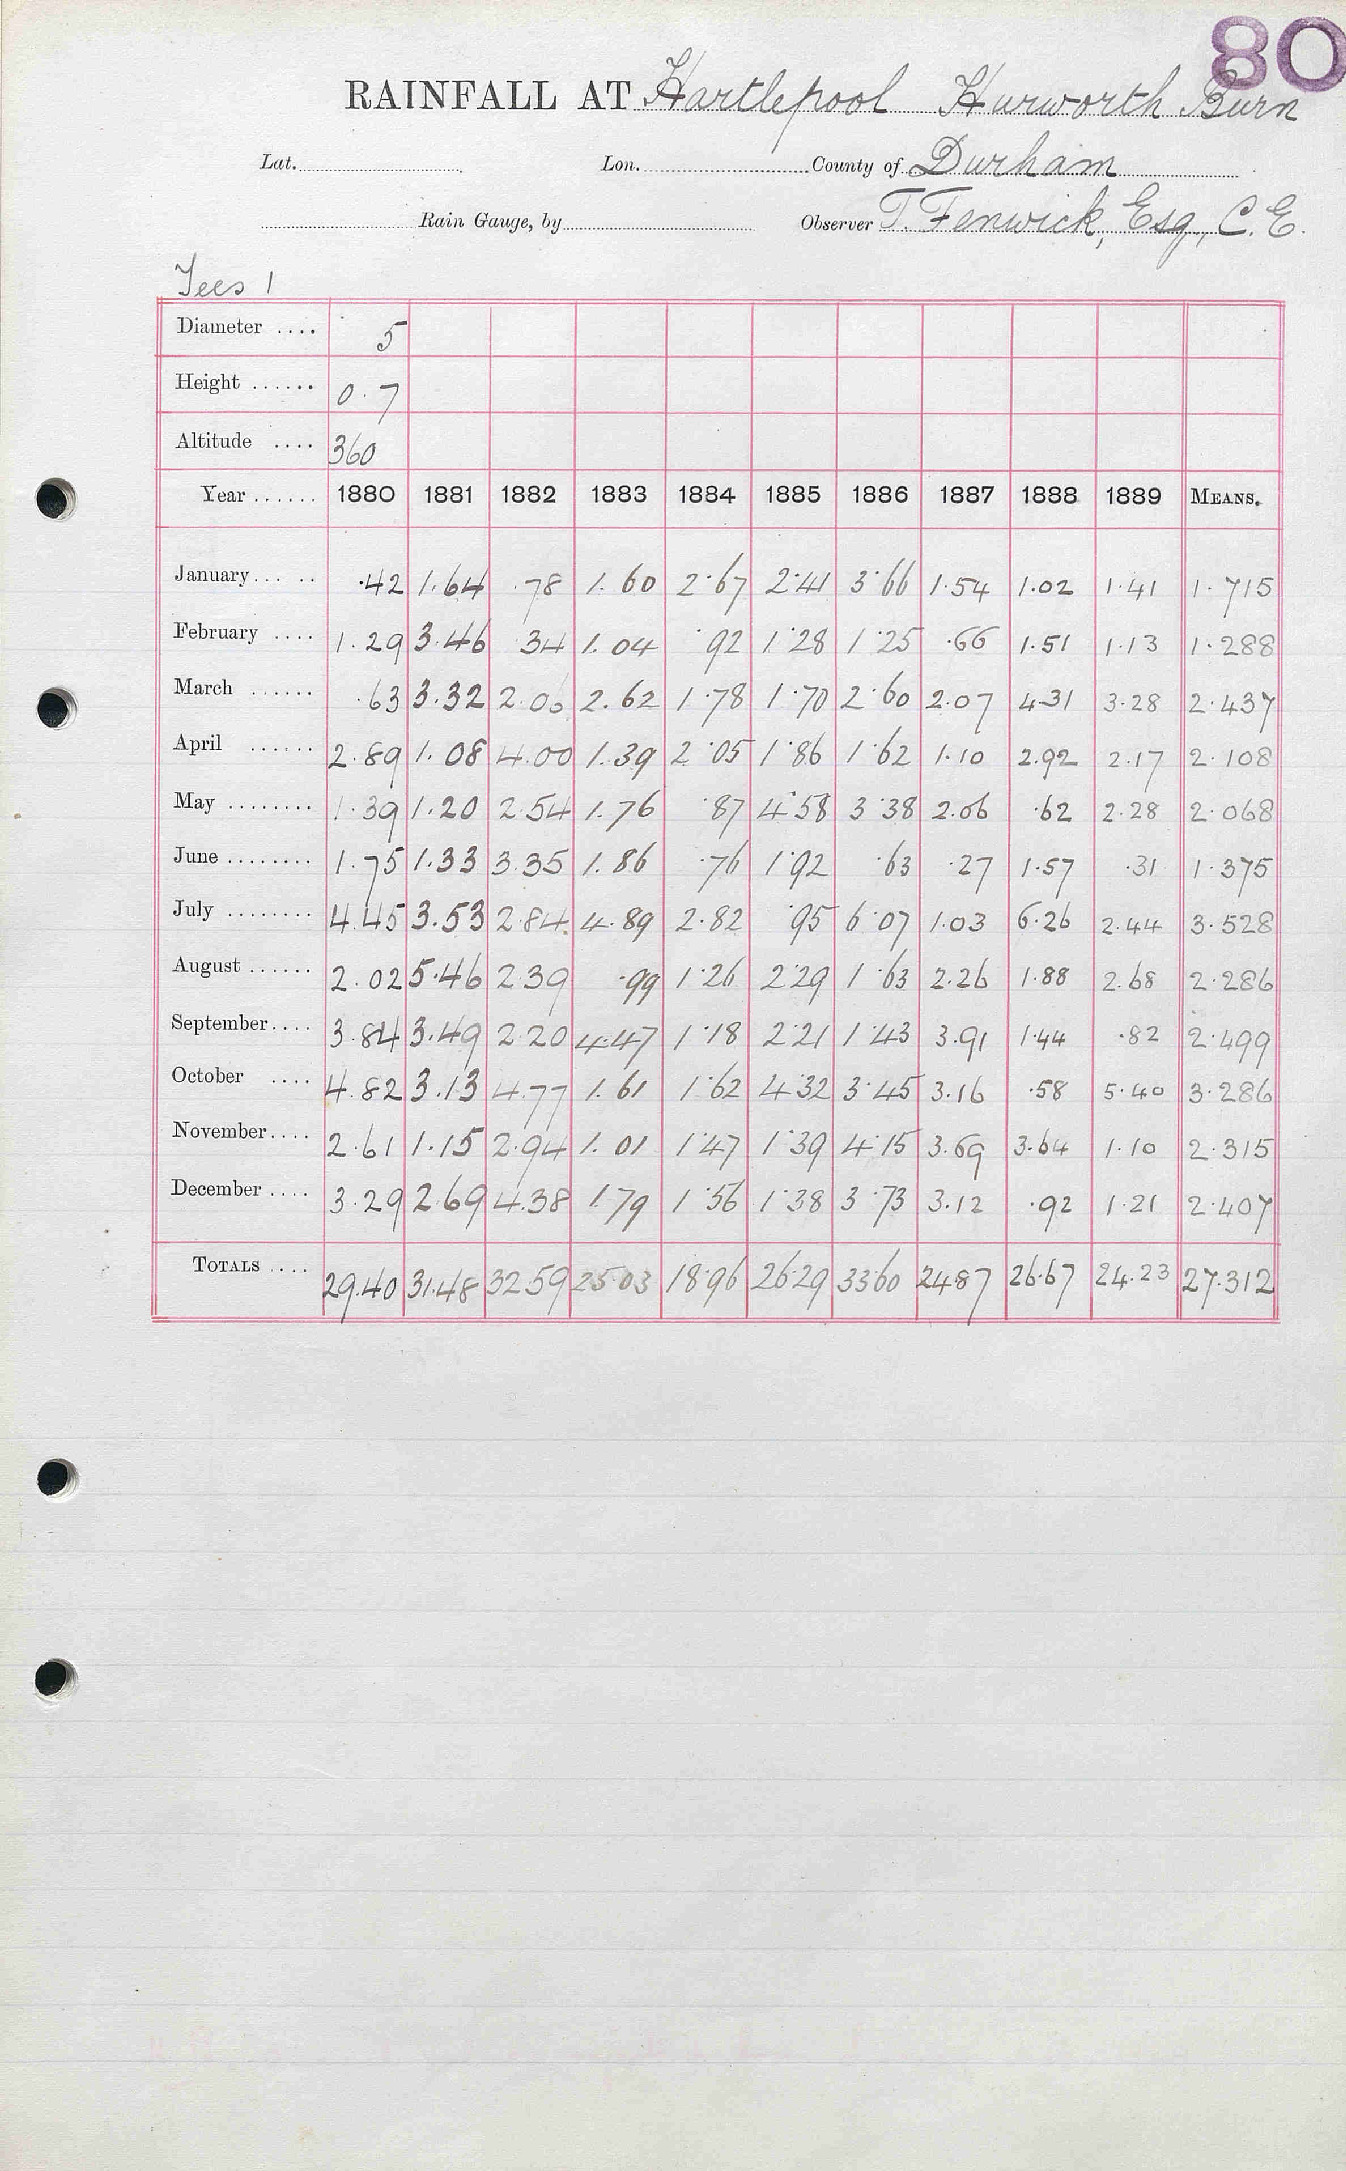 80
RAINFALL AT Hartlepool Hurworth Burn
Lat. Lon. County of Durham
Rain Gauge, by Observer T. Fenwick, Esq., C.E.
Tees 1
Diameter .... 5
Height ...... 0.7
Altitude .... 360
Year ...... 1880 1881 1882 1883 1884 1885 1886 1887 1888 1889 MEANS.
January... .. .42 1.64 .78 1.60 2.67 2.41 3.66 1.54 1.02 1.41 1.715
February .... 1.29 3.46 .34 1.04 .92 1.28 1.25 .66 1.51 1.13 1.288
March ...... .63 3.32 2.06 2.62 1.78 1.70 2.60 2.07 4.31 3.28 2.437
April ...... 2.89 1.08 4.00 1.39 2.05 1.86 1.62 1.10 2.92 2.17 2.108
May ........ 1.39 1.20 2.54 1.76 .87 4.58 3.38 2.06 .62 2.28 2.068
June ........ 1.75 1.33 3.35 1.86 .76 1.92 .63 .27 1.57 .31 1.375
July ........ 4.45 3.53 2.84 4.89 2.82 .95 6.07 1.03 6.26 2.44 3.528
August ...... 2.02 5.46 2.39 .99 1.26 2.29 1.63 2.26 1.88 2.68 2.286
September.... 3.84 3.49 2.20 4.47 1.18 2.21 1.43 3.91 1.44 .82 2.499
October .... 4.82 3.13 4.77 1.61 1.62 4.32 3.45 3.16 .58 5.40 3.286
November.... 2.61 1.15 2.94 1.01 1.47 1.39 4.15 3.69 3.64 1.10 2.315
December .... 3.29 2.69 4.38 1.79 1.56 1.38 3.73 3.12 .92 1.21 2.407
TOTALS .... 29.40 31.48 32.59 25.03 18.96 26.29 33.60 24.87 26.67 24.23 27.312